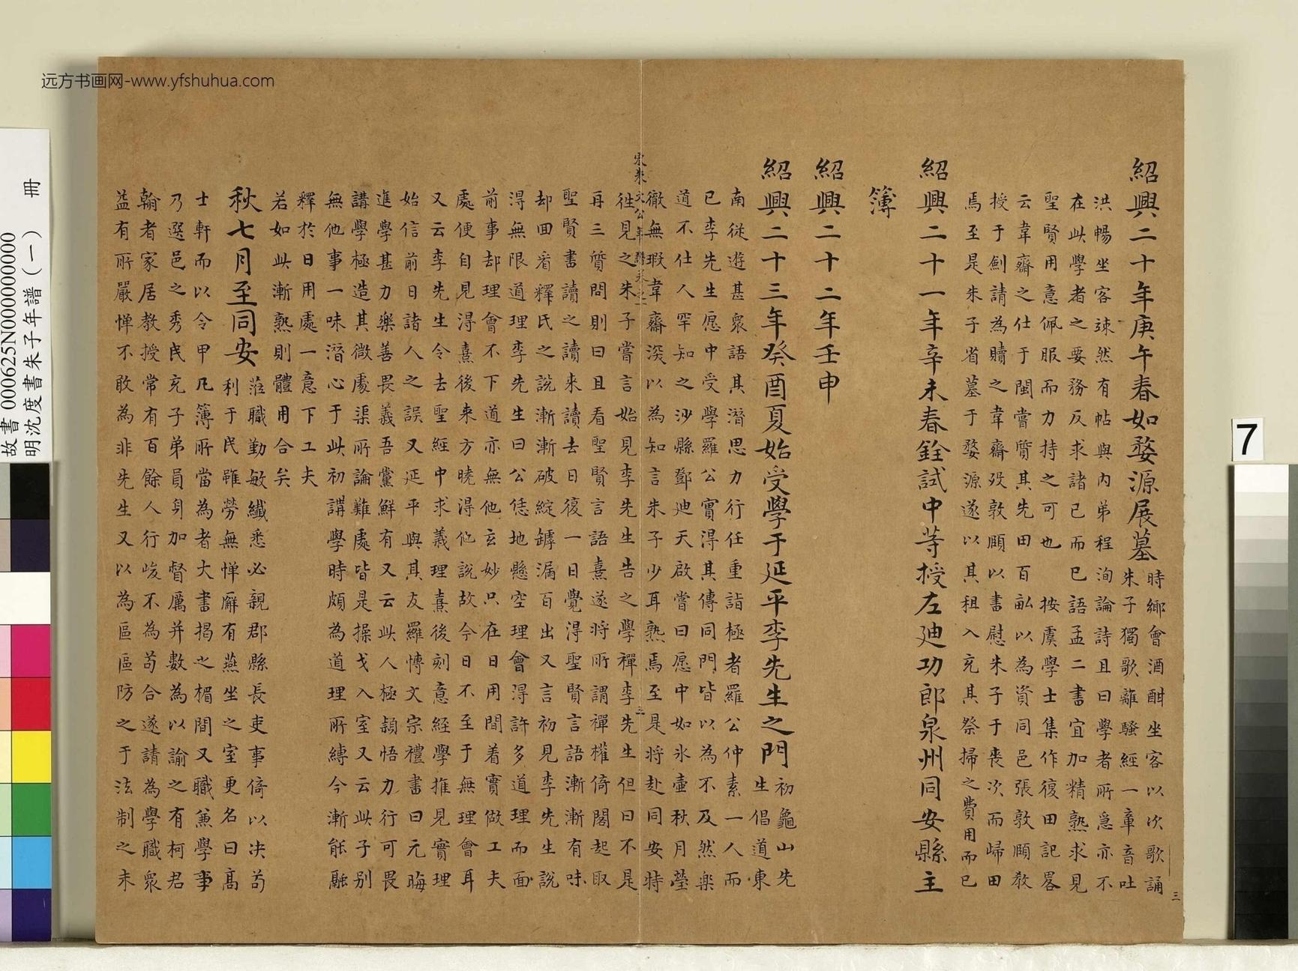 远方书画网-www.yfshuhua.com
故書 000625N000000000
明沈度書朱子年譜(一) 冊
7
紹興二十年庚午春如婺源展墓
時鄉會酒酣坐客以次歌誦
朱子獨歌離騷經一章音吐
洪暢坐客竦然有帖與內弟程洵論詩且曰學者所急亦不
在此學者之要務反求諸己而已語孟二書宜加精熟求見
聖賢用意佩服而力持之可也 按虞學士集作復田記畧
云韋齋之仕于閩嘗質其先田百畝以為資同邑張敦頤教
授于劍請為贖之韋齋歿敦頤以書慰朱子于喪次而歸田
焉至是朱子省墓于婺源遂以其租入充其祭掃之費用而已
紹興二十一年辛未春銓試中等授左廸功郎泉州同安縣主
簿
紹興二十二年壬申
紹興二十三年癸酉夏始受學于延平李先生之門
初龜山先
生倡道東
南從遊甚衆語其潛思力行任重詣極者羅公仲素一人而
已李先生愿中受學羅公實得其傳同門皆以為不及然樂
道不仕人罕知之沙縣鄧迪天啟嘗曰愿中如氷壺秋月瑩
徹無瑕韋齋深以為知言朱子少耳熟焉至是將赴同安特
徃見之朱子嘗言始見李先生告之學禪李先生但曰不是
再三質問則曰且看聖賢言語熹遂將所謂禪權倚閣起取
聖賢書讀之讀來讀去日復一日覺得聖賢言語漸漸有味
却回看釋氏之說漸漸破綻罅漏百出又言初見李先生說
得無限道理李先生曰公恁地懸空理會得許多道理而面
前事却理會不下道亦無他玄妙只在日用間着實做工夫
處便自見得熹後來方曉得他說故今日不至于無理會耳
又云李先生令去聖經中求義理熹後刻意經學推見實理
始信前日諸人之誤又延平與其友羅博文宗禮書曰元晦
進學甚力樂善畏義吾黨鮮有又云此人極頴悟力行可畏
講學極造其微處渠所論難處皆是操戈入室又云此子別
無他事一味潛心于此初講學時頗為道理所縛今漸能融
釋於日用處一意下工夫
若如此漸熟則體用合矣
秋七月至同安
蒞職勤敏纖悉必親郡縣長吏事倚以决苟
利于民雖勞無憚廨有燕坐之室更名曰高
士軒而以令甲凡簿所當為者大書揭之楣間又職兼學事
乃選邑之秀民充子弟員身加督厲并數為以諭之有柯君
翰者家居教授常有百餘人行峻不為苟合遂請為學職衆
益有所嚴憚不敢為非先生又以為區區防之于法制之末
三